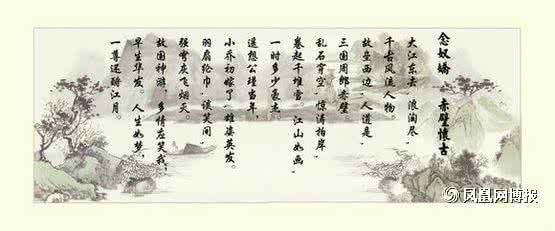 念奴嬌·赤壁怀古
大江东去 浪淘尽,
千古风流人物。
故垒西边,人道是,
三国周郎赤壁
乱石穿空,惊涛拍岸,
卷起千堆雪。江山如画,
一时多少豪杰。
遥想公瑾当年,
小乔初嫁了,雄姿英发。
羽扇纶巾,谈笑间,
强虏灰飞烟灭
故国神游,多情应笑我,
早生华发。人生如梦,
一尊还酹江月。
凤凰网博报